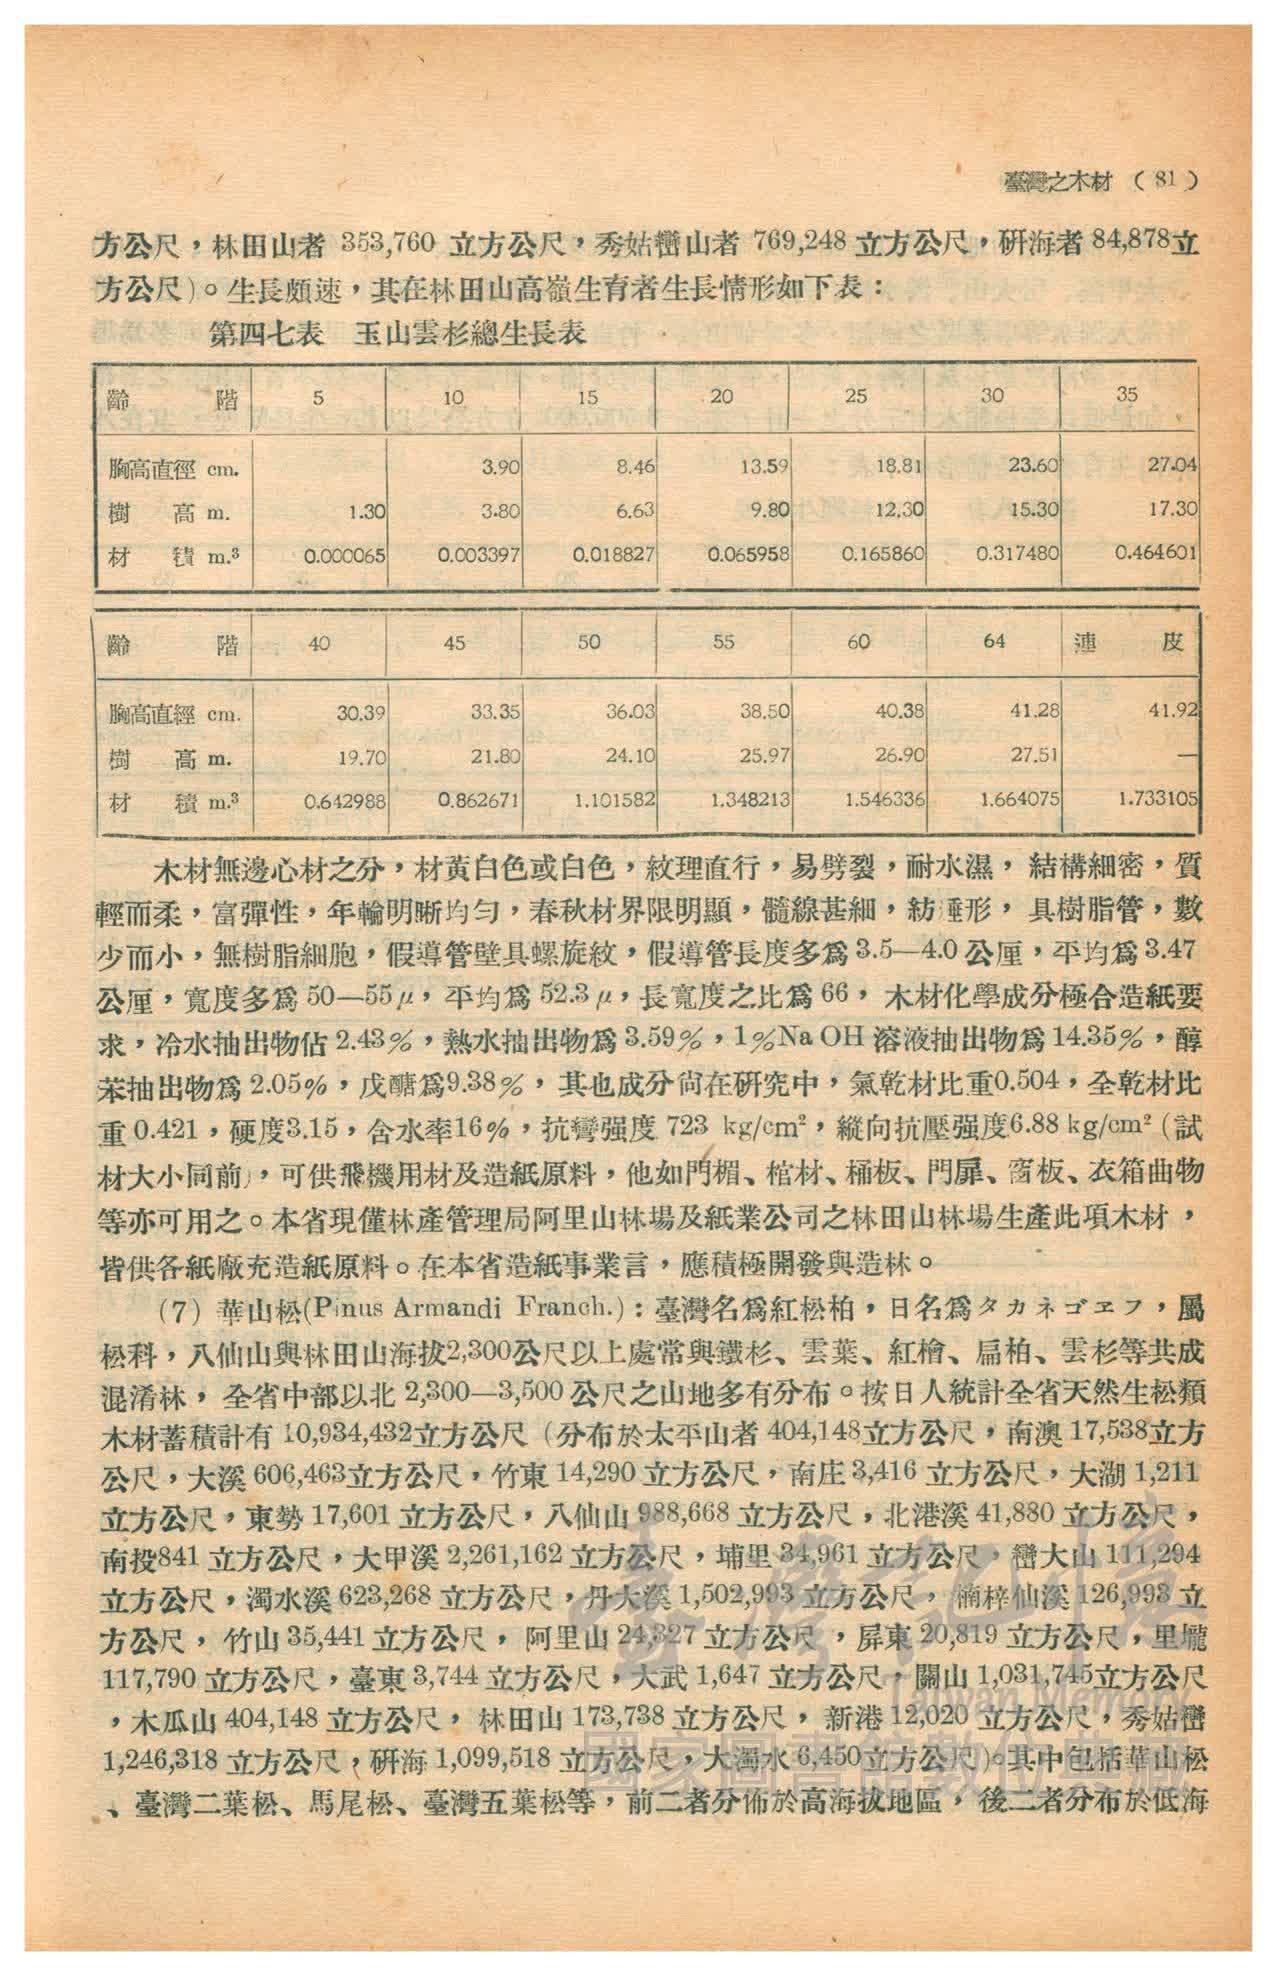 臺灣之木材 (81)
方公尺，林田山者 353,760 立方公尺，秀姑巒山者 769,248 立方公尺，硏海者 84,878立
方公尺)。生長頗速，其在林田山高嶺生育者生長情形如下表：
第四七表 玉山雲杉總生長表
齡 階 5 10 15 20 25 30 35
胸高直徑 cm. 3.90 8.46 13.59 18.81 23.60 27.04
樹 高 m. 1.30 3.80 6.63 9.80 12.30 15.30 17.30
材 積 m.³ 0.000065 0.003397 0.018827 0.065958 0.165860 0.317480 0.464601
齡 階 40 45 50 55 60 64 連 皮
胸高直經 cm. 30.39 33.35 36.03 38.50 40.38 41.28 41.92
樹 高 m. 19.70 21.80 24.10 25.97 26.90 27.51 —
材 積 m.³ 0.642988 0.862671 1.101582 1.348213 1.546336 1.664075 1.733105
木材無邊心材之分，材黃白色或白色，紋理直行，易劈裂，耐水濕，結構細密，質
輕而柔，富彈性，年輪明晰均勻，春秋材界限明顯，髓線甚細，紡埀形，具樹脂管，數
少而小，無樹脂細胞，假導管壁具螺旋紋，假導管長度多爲 3.5—4.0 公厘，平均爲 3.47
公厘，寬度多爲 50—55μ，平均爲 52.3μ，長寬度之比爲 66，木材化學成分極合造紙要
求，冷水抽出物佔 2.43%，熱水抽出物爲 3.59%，1%Na OH 溶液抽出物爲 14.35%，醇
苯抽出物爲 2.05%，戊醣爲9.38%，其也成分尙在硏究中，氣乾材比重0.504，全乾材比
重 0.421，硬度3.15，含水率16%，抗彎强度 723 kg/cm²，縱向抗壓强度6.88 kg/cm² (試
材大小同前)，可供飛機用材及造紙原料，他如門楣、棺材、桶板、門扉、窗板、衣箱曲物
等亦可用之。本省現僅林產管理局阿里山林場及紙業公司之林田山林場生產此項木材，
皆供各紙廠充造紙原料。在本省造紙事業言，應積極開發與造林。
(7) 華山松(Pinus Armandi Franch.)：臺灣名爲紅松柏，日名爲タカネゴヱフ，屬
松科，八仙山與林田山海拔2,300公尺以上處常與鐵杉、雲葉、紅檜、扁柏、雲杉等共成
混淆林，全省中部以北 2,300—3,500 公尺之山地多有分布。按日人統計全省天然生松類
木材蓄積計有 10,934,432立方公尺 (分布於太平山者 404,148立方公尺，南澳 17,538立方
公尺，大溪 606,463立方公尺，竹東 14,290 立方公尺，南庄 3,416 立方公尺，大湖 1,211
立方公尺，東勢 17,601 立方公尺，八仙山 988,668 立方公尺，北港溪 41,880 立方公尺，
南投841 立方公尺，大甲溪 2,261,162 立方公尺，埔里 34,961 立方公尺，巒大山 111,294
立方公尺，濁水溪 623,268 立方公尺，丹大溪 1,502,993 立方公尺，楠梓仙溪 126,993 立
方公尺，竹山 35,441 立方公尺，阿里山 24,327 立方公尺，屏東 20,819 立方公尺，里壠
117,790 立方公尺，臺東 3,744 立方公尺，大武 1,647 立方公尺，關山 1,031,745立方公尺
，木瓜山 404,148 立方公尺，林田山 173,738 立方公尺，新港 12,020 立方公尺，秀姑巒
1,246,318 立方公尺，硏海 1,099,518 立方公尺，大濁水 6,450立方公尺)。其中包括華山松
、臺灣二葉松、馬尾松、臺灣五葉松等，前二者分佈於高海拔地區，後二者分布於低海
臺灣記憶
Taiwan Memory
國家圖書館數位典藏